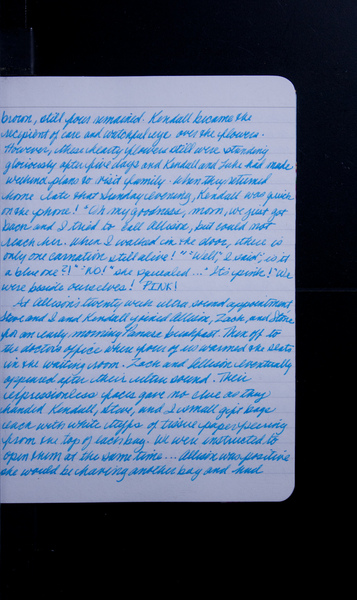 brown, still four remained. Kendall became the
recipient of care and watchful eye over the flowers.
However, these hearty flowers still were standing
gloriously after five days and Kendall and Luke had made
weekend plans to visit family. When they returned
home late that Sunday evening, Kendall was quick
on the phone! "Oh my goodness, mom, we just got
back and I tried to call Allison, but could not
reach her. When I walked in the door, there is
only one carnation still alive!" "Well," I said, "is it
a blue one?!" "NO!" she squealed... "It's pink!" We
were beside ourselves! PINK!
At Allison's twenty week ultra sound appointment
Steve and I and Kendall joined Allison, Zach, and
for an early morning Panera breakfast. Then off to
the doctor's office where four of us warmed the slats
in the waiting room. Zach and Allison eventually
appeared after their ultra sound. Their
expressionless faces gave no clue as they
handed Kendall, Steve, and I small gift bags
each with white tufts of tissue paper peering
from the top of each bag. We were instructed to
open them at the same time... Allison was positive
she would be having another boy and had